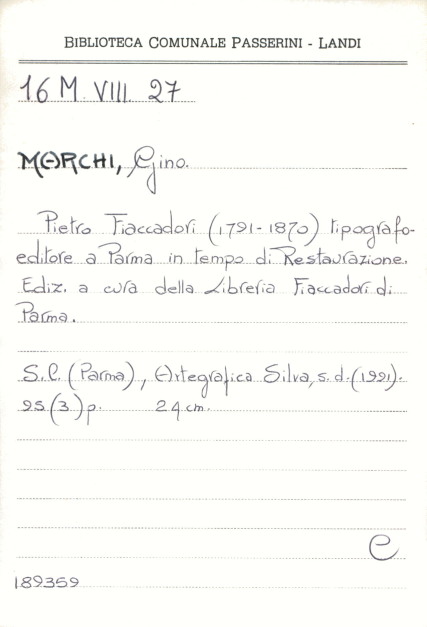 BIBLIOTECA COMUNALE PASSERINI - LANDI
16 M. VIII. 27
MARCHI, Gino.
Pietro Fiaccadori (1791-1870) tipografo-
editore a Parma in tempo di Restaurazione.
Ediz. a cura della Libreria Fiaccadori di
Parma.
S.l. (Parma), Artegrafica Silva, s.d. (1991).
95 (3) p. 24 cm.
e
189359